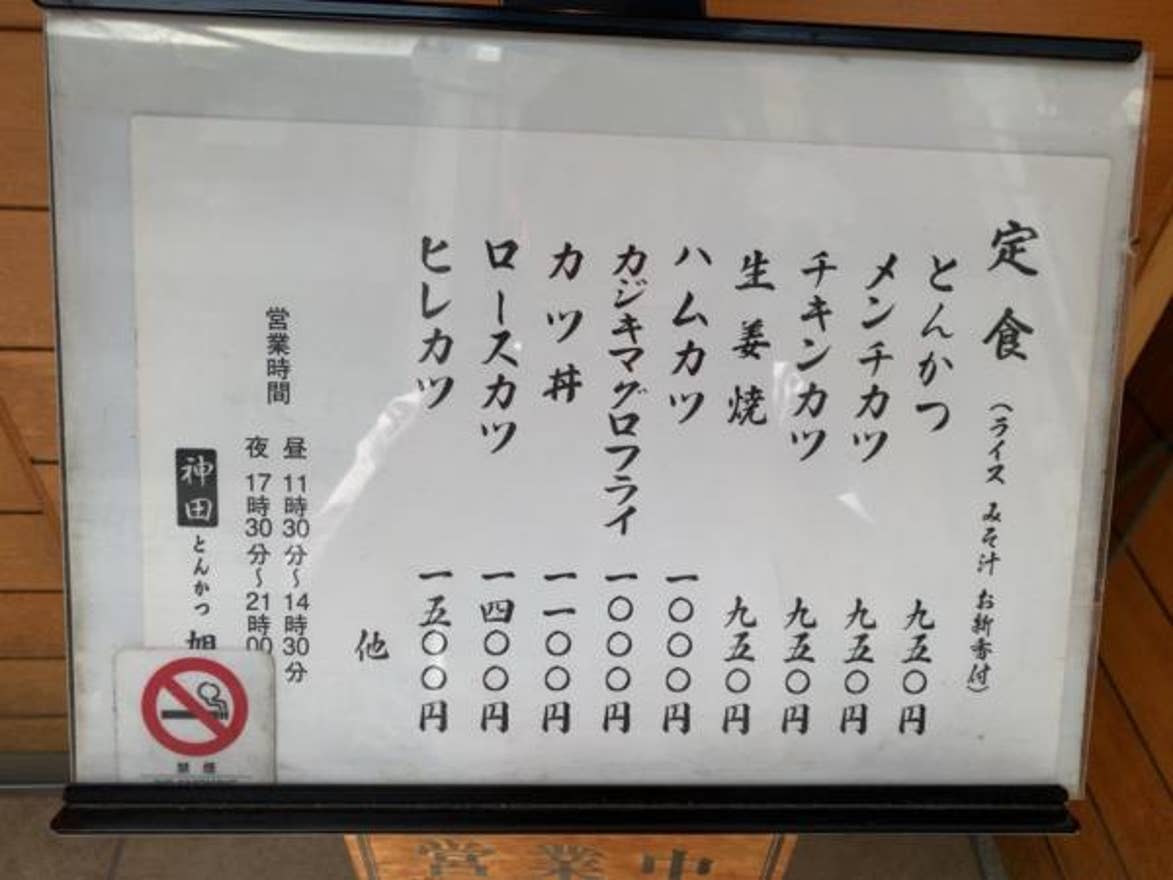 定食 (ライス みそ汁 お新香付)
とんかつ 九五〇円
メンチカツ 九五〇円
チキンカツ 九五〇円
生姜焼 九五〇円
ハムカツ 一〇〇〇円
カジキマグロフライ 一〇〇〇円
カツ丼 一一〇〇円
ロースカツ 一四〇〇円
ヒレカツ 一五〇〇円
他
営業時間
昼 11時30分~14時30分
夜 17時30分~21時00
神田 とんかつ 旭
禁煙
営業中